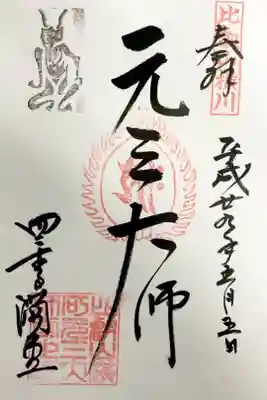 比叡山横川
奉拝
平成廿九年五月五日
元三大師
四季講堂